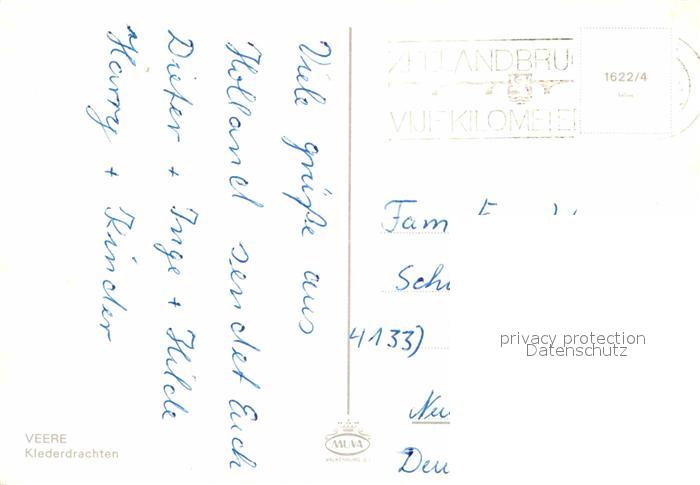 Viele grüße aus
Holland sendet Euch
Dieter + Inge + Hilde
Harry + Kinder
VEERE
Klederdrachten
MUVA
VALKENBURG
ZEELANDBRU
VIJF KILOMETE
1622/4
Fam
Sch
4133)
Neu
Deu
privacy protection
Datenschutz